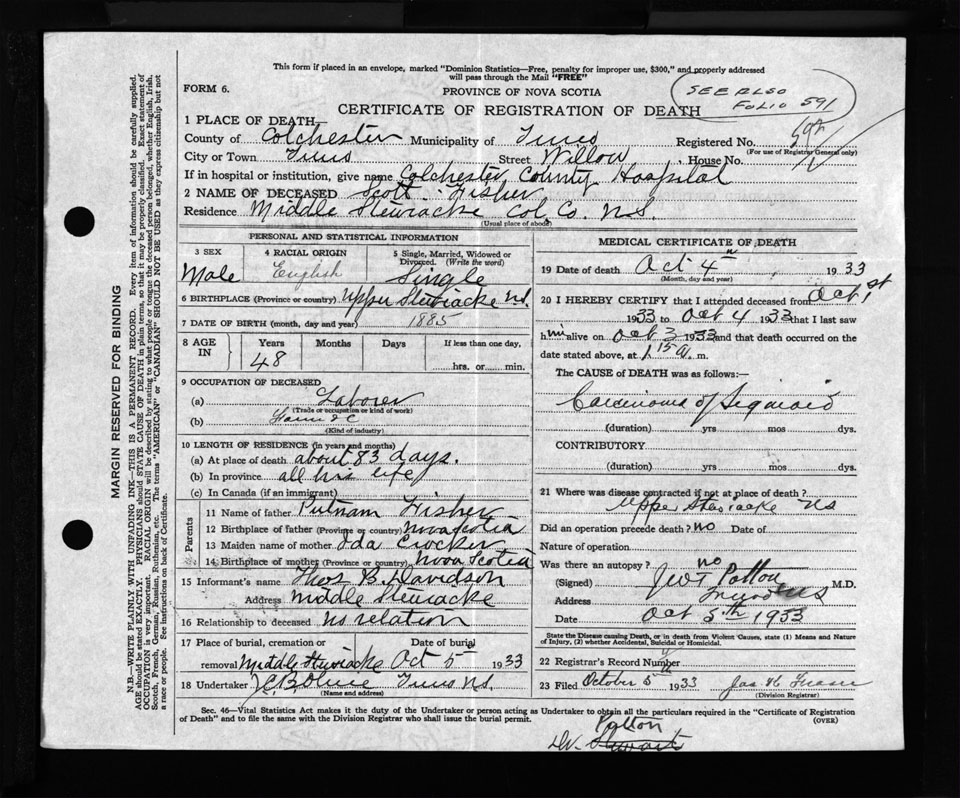 This form if placed in an envelope, marked "Dominion Statistics—Free, penalty for improper use, $300," and properly addressed
will pass through the Mail "FREE"
FORM 6.
PROVINCE OF NOVA SCOTIA
SEE ALSO
FOLIO 591
CERTIFICATE OF REGISTRATION OF DEATH
1 PLACE OF DEATH
County of Colchester Municipality of Truro Registered No.
(For use of Registrar General only)
City or Town Truro Street Willow House No.
If in hospital or institution, give name Colchester County Hospital
2 NAME OF DECEASED Scott Fisher
Residence Middle Stewiacke Col. Co. N.S.
(Usual place of abode)
PERSONAL AND STATISTICAL INFORMATION
3 SEX
4 RACIAL ORIGIN
5 Single, Married, Widowed or
Divorced. (Write the word)
Male English Single
6 BIRTHPLACE (Province or country) Upper Stewiacke N.S.
7 DATE OF BIRTH (month, day and year) 1885
8 AGE
IN
Years Months Days If less than one day,
48
hrs. or min.
9 OCCUPATION OF DECEASED
(a) Laborer
(Trade or occupation or kind of work)
(b)
(Kind of industry)
10 LENGTH OF RESIDENCE (in years and months)
(a) At place of death about 83 days.
(b) In province all his life
(c) In Canada (if an immigrant)
Parents
11 Name of father Putnam Fisher
12 Birthplace of father (Province or country) Nova Scotia
13 Maiden name of mother Ida Crocker
14 Birthplace of mother (Province or country) Nova Scotia
15 Informant's name Thos B. Davidson
Address Middle Stewiacke
16 Relationship to deceased no relation
17 Place of burial, cremation or Date of burial
removal Middle Stewiacke Oct 5 1933
18 Undertaker Truro N.S.
(Name and address)
MEDICAL CERTIFICATE OF DEATH
19 Date of death Oct 4th, 1933
(Month, day and year)
20 I HEREBY CERTIFY that I attended deceased from Oct 1st
1933 to Oct 4 1933 that I last saw
him alive on Oct 3 1933 and that death occurred on the
date stated above, at 1.15 a. m.
The CAUSE of DEATH was as follows:—
Carcinoma of Sigmoid
(duration) yrs mos dys.
CONTRIBUTORY
(duration) yrs mos dys.
21 Where was disease contracted if not at place of death?
Upper Stewiacke NS
Did an operation precede death? no Date of
Nature of operation
Was there an autopsy? no
(Signed) JWT Patton M.D.
Address Truro NS
Date Oct 5th 1933
State the Disease causing Death, or in death from Violent Causes, state (1) Means and Nature
of Injury, (2) whether Accidental, Suicidal or Homicidal.
22 Registrar's Record Number
23 Filed October 5 1933 Jas K Fraser
(Division Registrar)
Sec. 46—Vital Statistics Act makes it the duty of the Undertaker or person acting as Undertaker to obtain all the particulars required in the "Certificate of Registration
of Death" and to file the same with the Division Registrar who shall issue the burial permit.
(OVER)
Patton
Dr. Stewart
MARGIN RESERVED FOR BINDING
N.B.—WRITE PLAINLY, WITH UNFADING INK—THIS IS A PERMANENT RECORD. Every item of information should be carefully supplied.
AGE should be stated EXACTLY. PHYSICIANS should STATE CAUSE OF DEATH in plain terms, so that it may be properly classified. Exact statement of
OCCUPATION is very important. RACIAL ORIGIN will be described by stating to what people or tongue the deceased person belonged, whether English, Irish,
Scotch, French, German, Russian, Ruthenian, etc. The terms "AMERICAN" or "CANADIAN" SHOULD NOT BE USED as they express citizenship but not
a race or people. See instructions on back of Certificate.